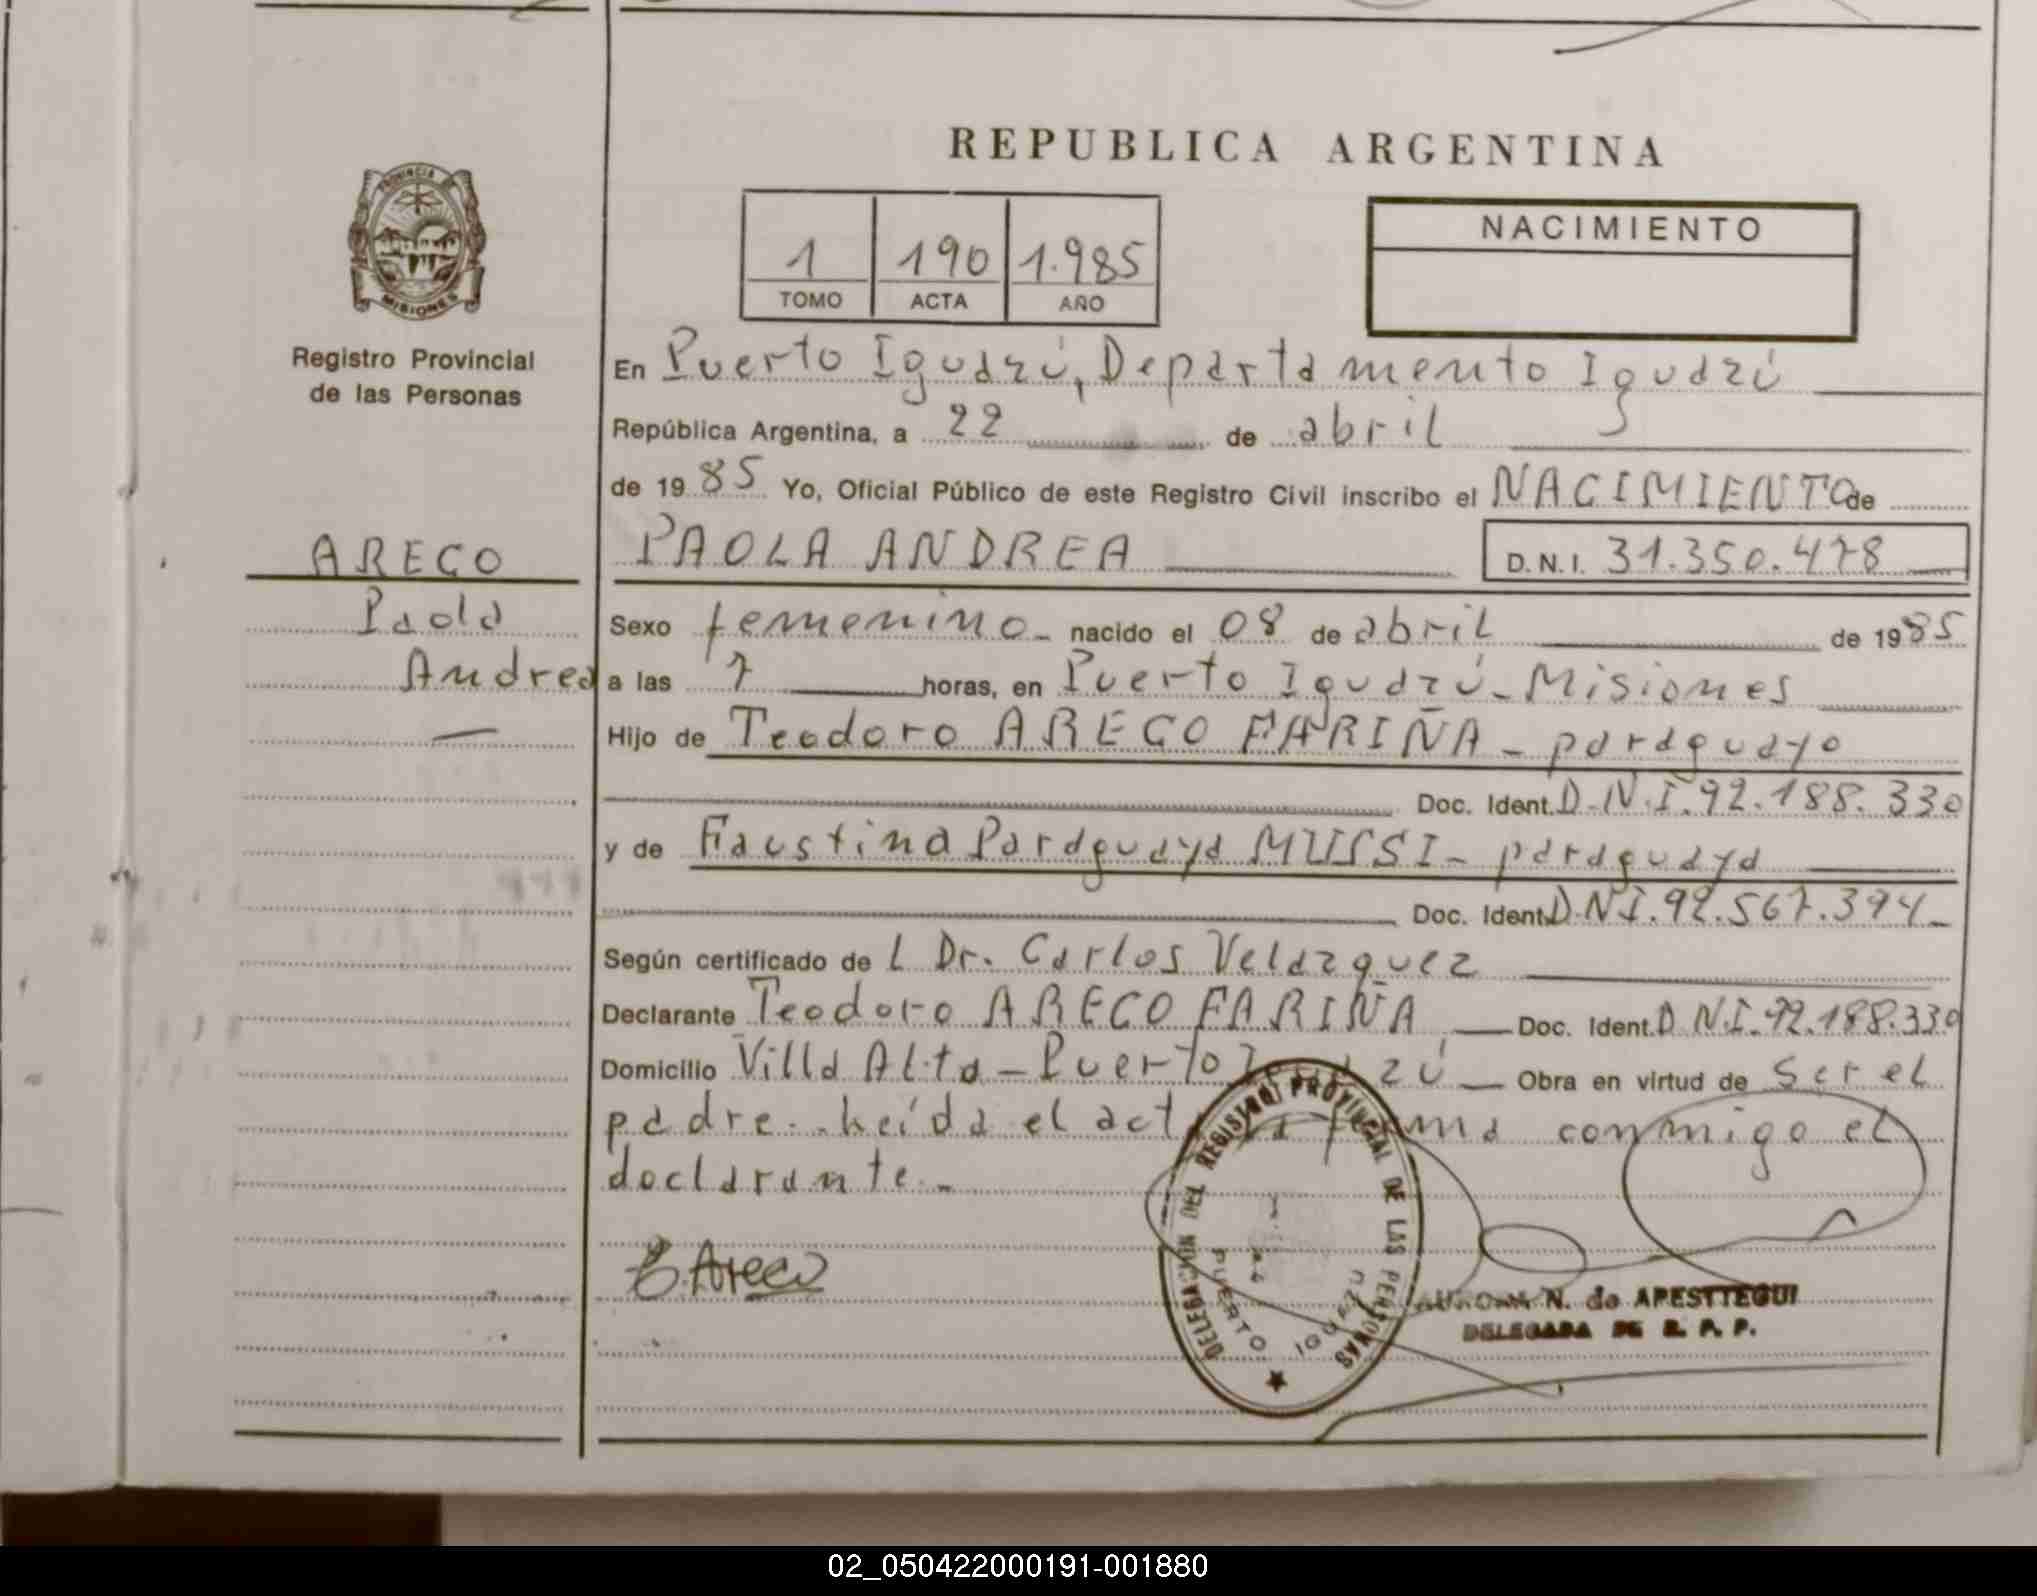 REPUBLICA ARGENTINA
PROVINCIA DE
MISIONES
Registro Provincial
de las Personas
1 190 1.985
TOMO ACTA AÑO
NACIMIENTO
En Puerto Iguazú, Departamento Iguazú
República Argentina, a 22 de abril
de 1985 Yo, Oficial Público de este Registro Civil inscribo el NACIMIENTO de
ARECO
PAOLA ANDREA D.N.I. 31.350.478
Paola
Andrea
Sexo femenino - nacido el 08 de abril de 1985
a las 7 horas, en Puerto Iguazú - Misiones
Hijo de Teodoro ARECO FARIÑA - paraguayo
Doc. Ident. D.N.I. 92.188.330
y de Faustina Paraguaya MUSSI - paraguaya
Doc. Ident. D.N.I. 92.567.394 -
Según certificado de L Dr. Carlos Velazquez
Declarante Teodoro ARECO FARIÑA Doc. Ident. D.N.I. 92.188.330
Domicilio Villa Alta - Puerto Obra en virtud de ser el
padre. - Leída el conmigo el
declarante. -
Areco
DELEGACION DEL REGISTRO PROVINCIAL DE LAS PERSONAS
PUERTO IGUAZU
N. de APESTTEGUI
DELEGADA DE R. P. P.
02_050422000191-001880